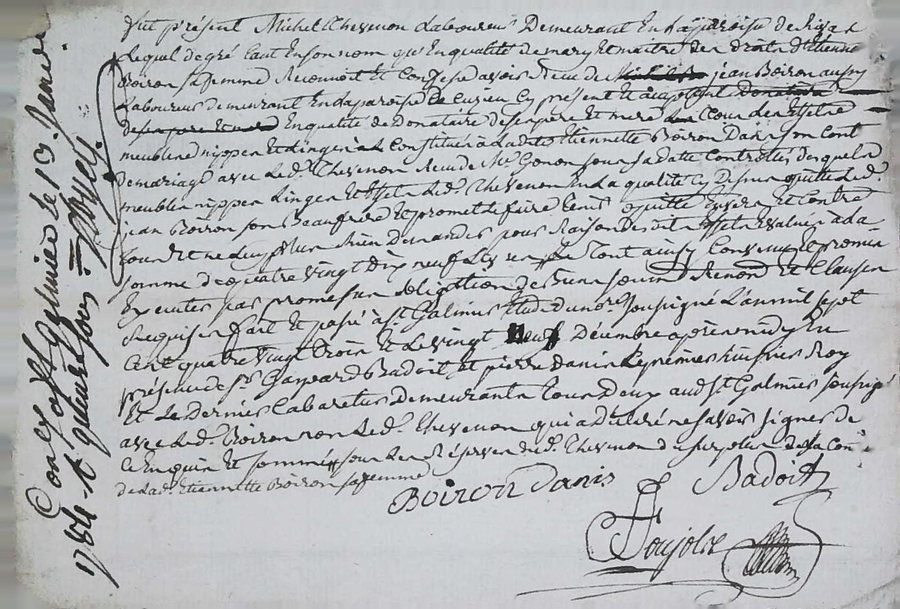 Fut présent Michel Chevenon Laboureur Demeurant En la paroisse de
Lequel de gré tant En son nom qu'En qualité de mary Et maitre des droits d'Etiennette
Boiron sa femme Reconnoit Et Confesse avoir Recu de jean Boiron aussy
Laboureur demeurant En la paroisse de Cuzieu Cy présent Et acceptant
En qualité de Donataire de ses pere Et mere
meubles nippes Et linges Constitués à ladte Etiennette Boiron Dans son Cont
de mariage avec led. Chevenon Recu de Me Gonon sous sa datte Controllé desquels
meubles nippes Linges Et Effets Led. Chevenon En la qualité Cy dessus quitte led.
jean Boiron son Beaufrère Et promet Le faire tenir quitte Envers Et Contre
tous Et ne luy plus Rien Demander pour Raison desdits Effets Evalués a la
somme de quatre vingt dix neuf Livres Tout ainsy Convenu Et promis
Executer par promesses obligations de Biens soumis Renond Et Clauses
Requises fait Et passé à St Galmier Etude du nore soussigné L'an mil sept
Cent quatre vingt trois Et Le vingt neuf Décembre après midy En
présence de Sr Gaspard Badoit Et pierre Danis Le premier huissier Roy
Et Le Dernier Cabaretier demeurants Tous Deux aud. St Galmier soussignés
avec Led. Boiron non Led. Chevenon qui a Déclaré ne savoir signer de
Ce Enquis Et sommé sous Les Réserves dud. Chevenon du surplus de la Con
de lad. Etiennette Boiron sa femme
Boiron Danis Badoit
Poujolz
Con à St Galmier le 13 Janvier
1784 R quinze sous